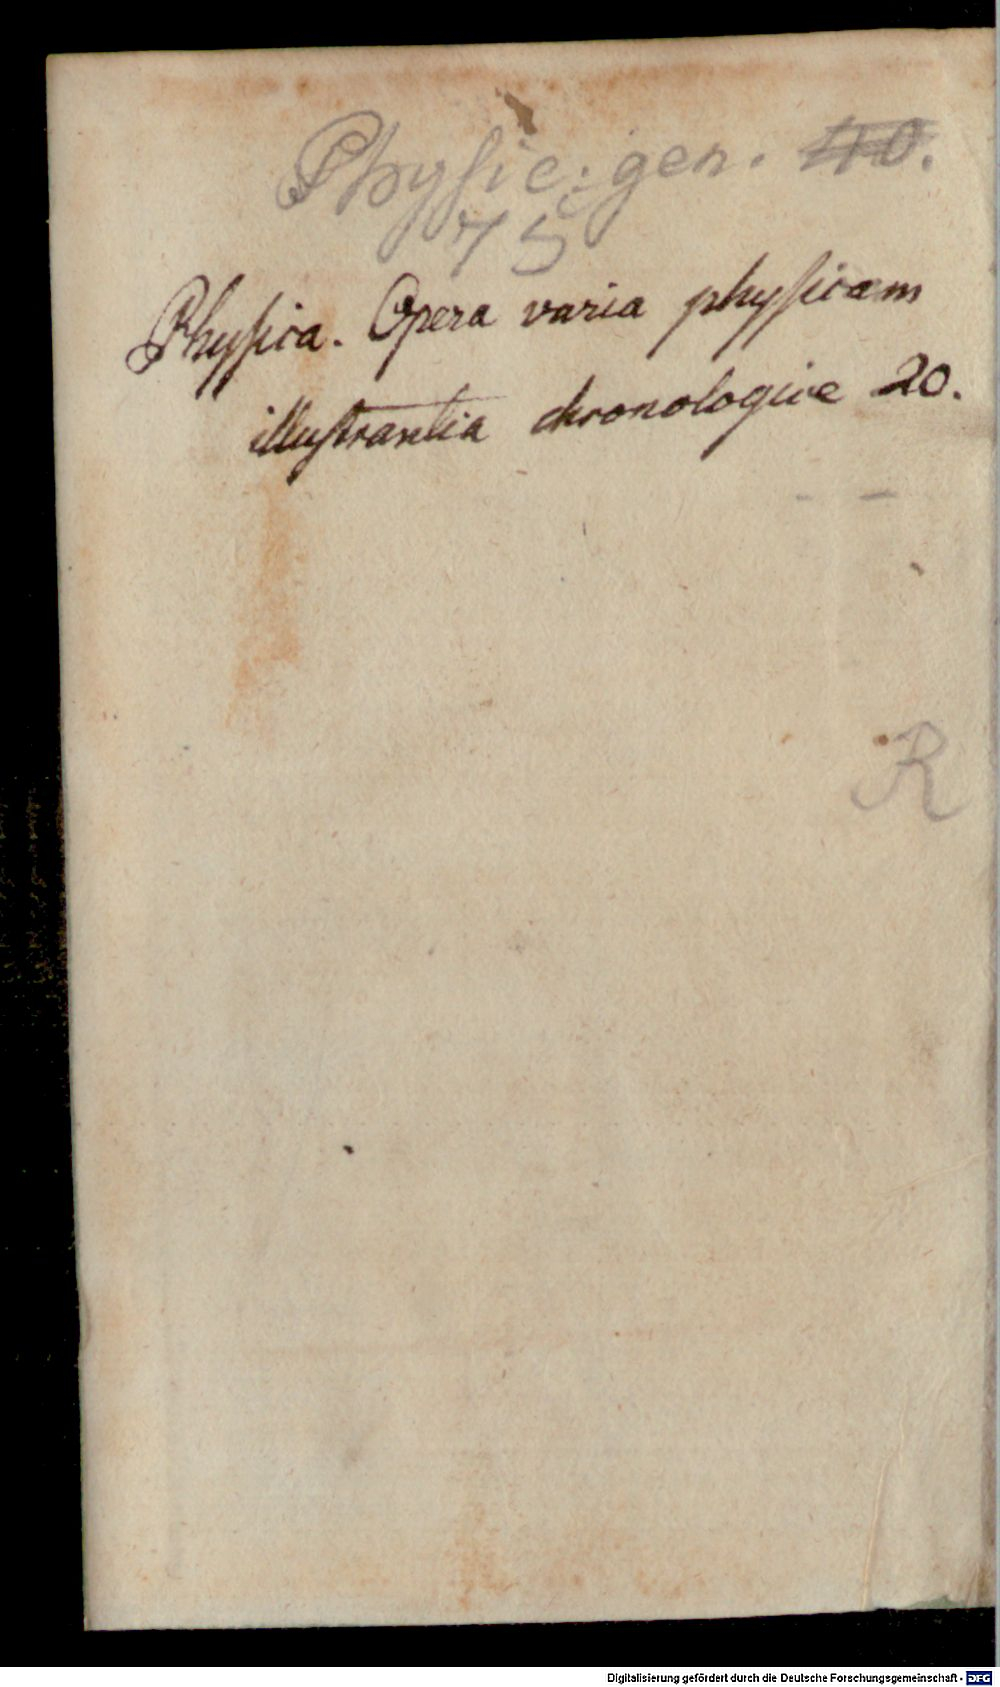 Physic: gen. 40.
75
Physica. Opera varia physicam
illustrantia chronologice 20.
R
Digitalisierung gefördert durch die Deutsche Forschungsgemeinschaft - DFG